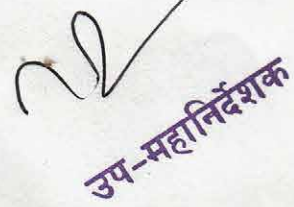 उप-महानिर्देशक